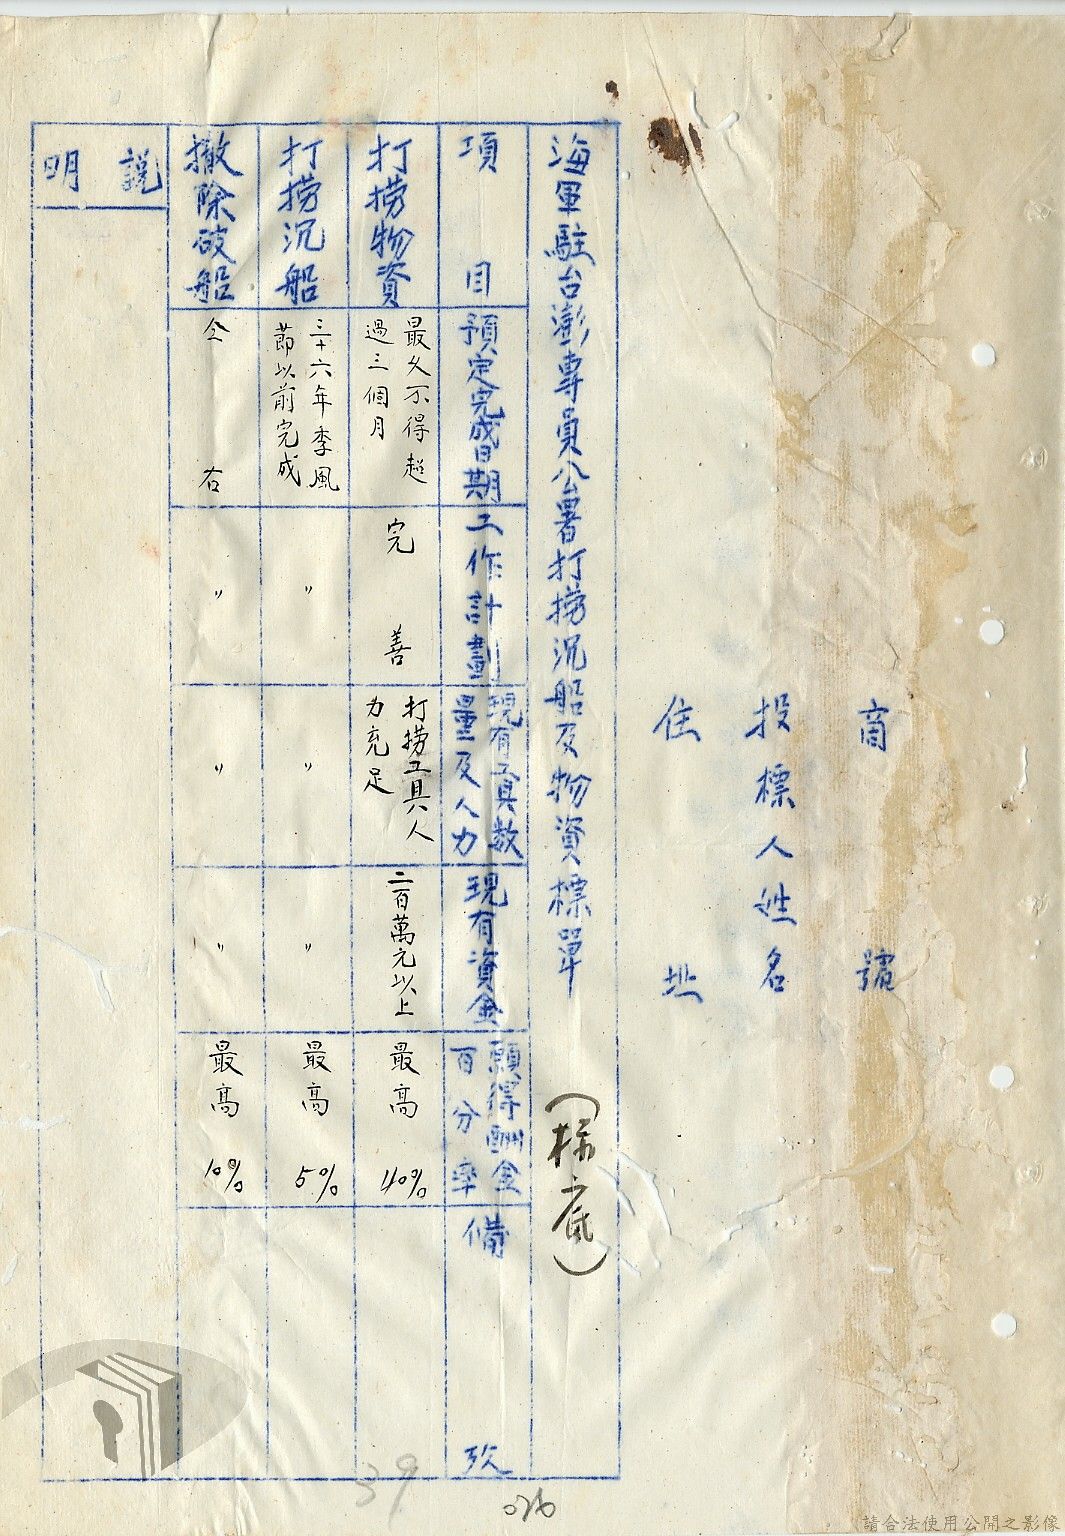 商號
投標人姓名
住址
海軍駐台澎專員公署打撈沉船及物資標單（標底）
項目
預定完成日期
工作計劃
現有工具數
量及人力
現有資金
願得酬金
百分率
備攷
打撈物資
最久不得超
過三個月
完善
打撈工具人
力充足
二百萬元以上
最高 40%
打撈沉船
三十六年季風
節以前完成
〃
〃
〃
最高 5%
撤除破船
仝右
〃
〃
〃
最高 10%
說明
39
026
請合法使用公開之影像